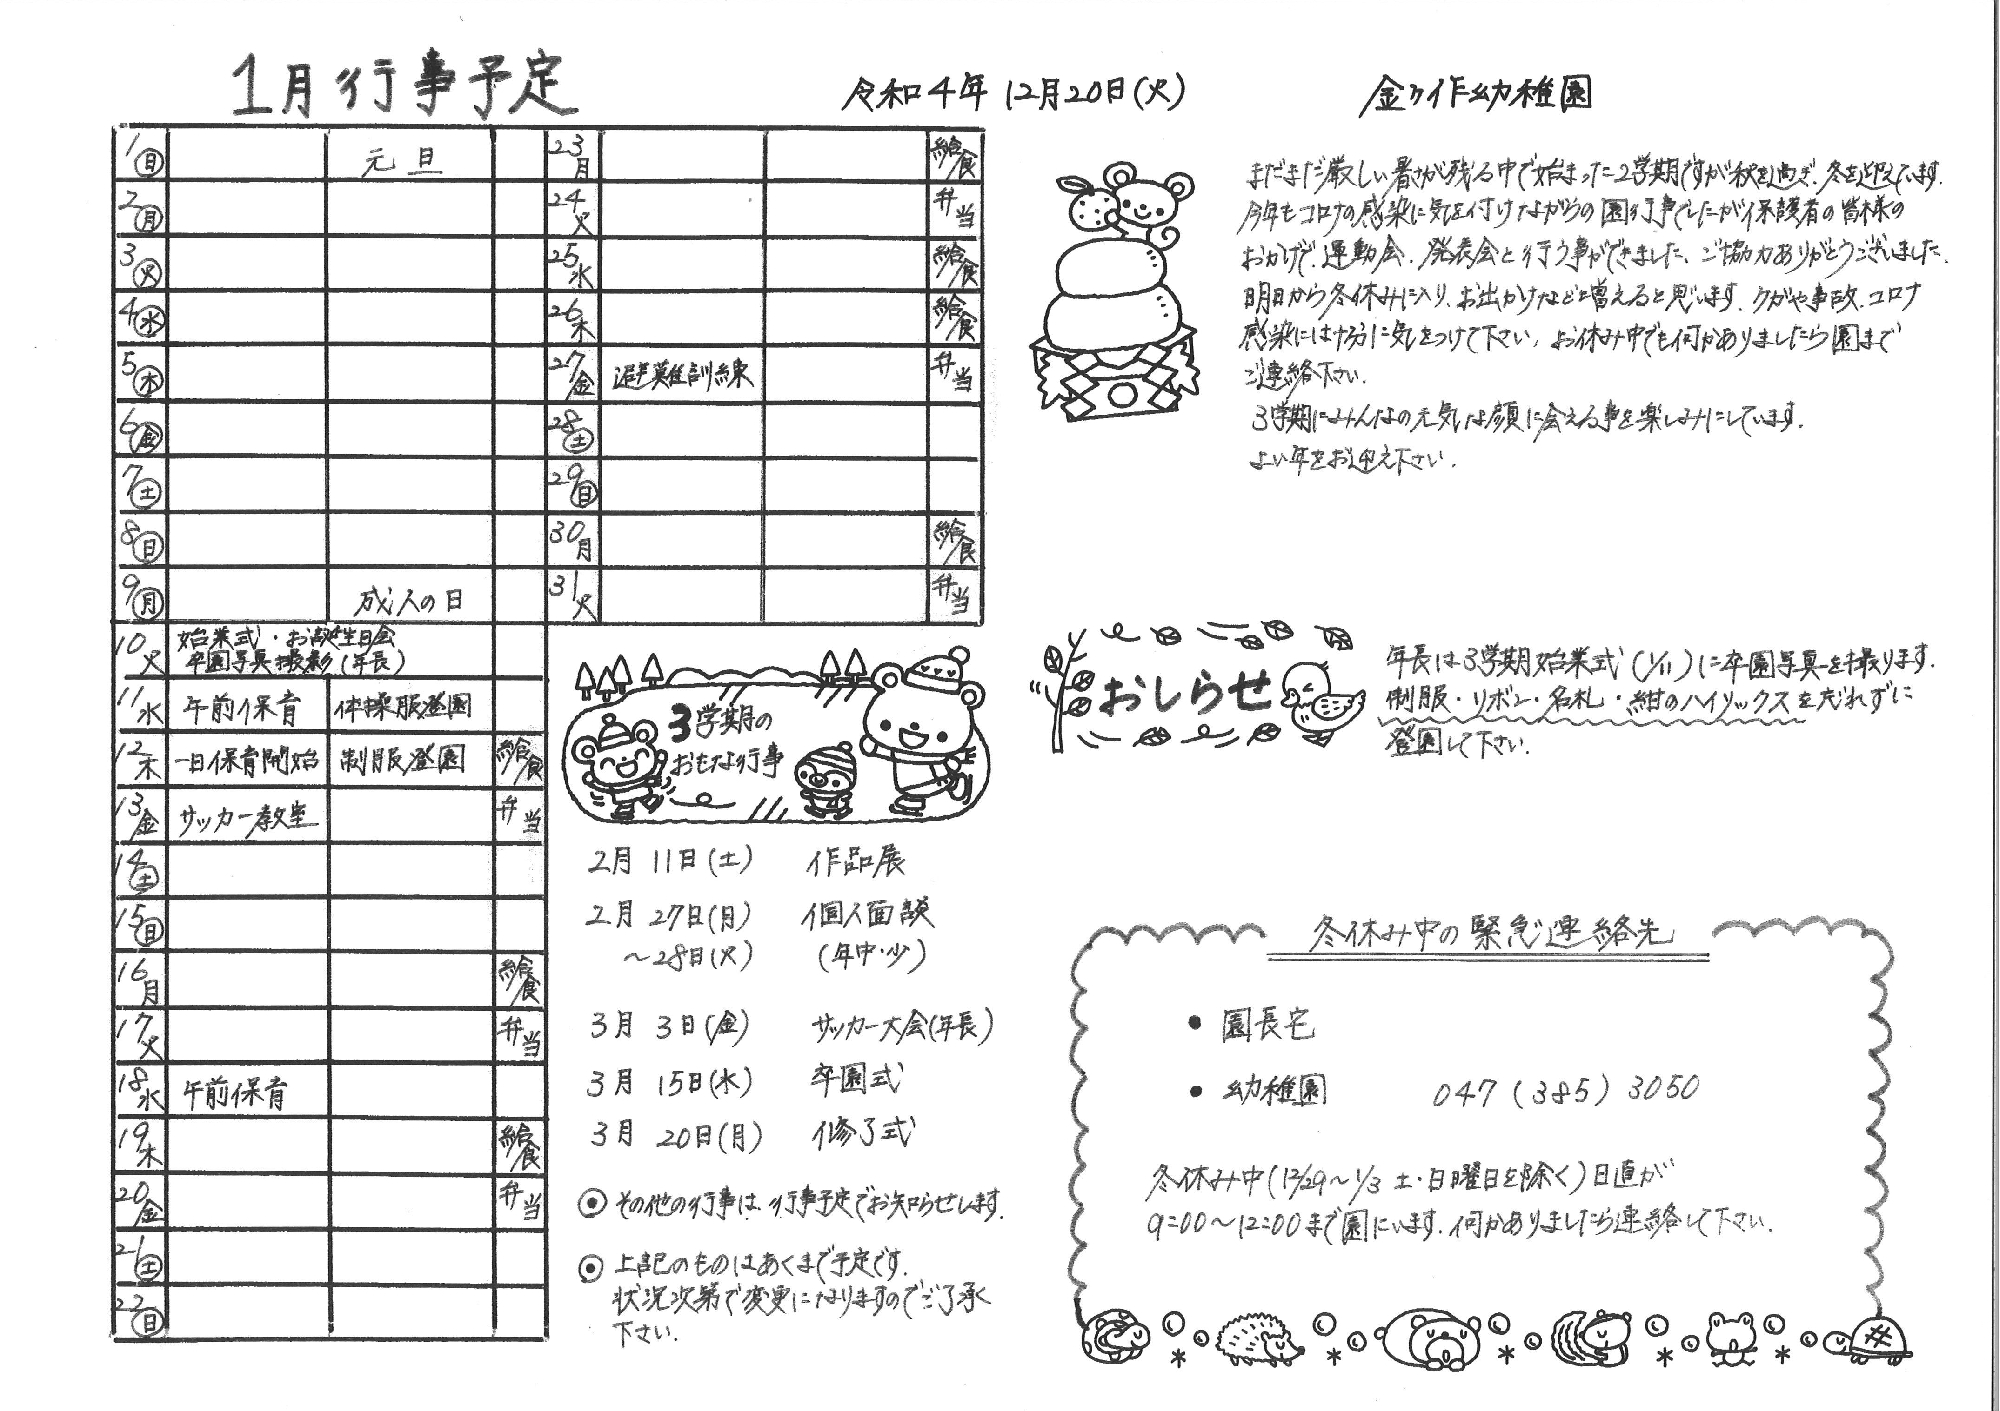 1月行事予定
令和4年 12月20日(火)
金ヶ作幼稚園
1 日 元旦
2 月
3 火
4 水
5 木
6 金
7 土
8 日
9 月 成人の日
10 火 始業式・お誕生日会
卒園写真撮影(年長)
11 水 午前保育 体操服登園
12 木 一日保育開始 制服登園 給食
13 金 サッカー教室 弁当
14 土
15 日
16 月 給食
17 火 弁当
18 水 午前保育
19 木 給食
20 金 弁当
21 土
22 日
23 月 給食
24 火 弁当
25 水 給食
26 木 給食
27 金 避難訓練 弁当
28 土
29 日
30 月 給食
31 火 弁当
3学期の
おもな行事
2月 11日(土) 作品展
2月 27日(月) 個人面談
～28日(火) (年中・少)
3月 3日(金) サッカー大会(年長)
3月 15日(水) 卒園式
3月 20日(月) 修了式
◉ その他の行事は、行事予定でお知らせします。
◉ 上記のものはあくまで予定です。
状況次第で変更になりますのでご了承
下さい。
まだまだ厳しい暑さが残る中で始まった2学期ですが秋を過ぎ、冬を迎えています。
今年もコロナの感染に気を付けながらの園行事でしたが保護者の皆様の
おかげで、運動会、発表会と行う事ができました。ご協力ありがとうございました。
明日から冬休みに入り、お出かけなどと増えると思います。ケガや事故、コロナ
感染には十分に気をつけて下さい。お休み中でも何かありましたら園まで
ご連絡下さい。
3学期にみんなの元気な顔に会える事を楽しみにしています。
よい年をお迎え下さい。
おしらせ
年長は3学期始業式(1/11)に卒園写真を撮ります。
制服・リボン・名札・紺のハイソックスを忘れずに
登園して下さい。
冬休み中の緊急連絡先
• 園長宅
• 幼稚園 047(385)3050
冬休み中(12/29～1/3 土・日曜日を除く)日直が
9:00～12:00まで園にいます。何かありましたら連絡して下さい。